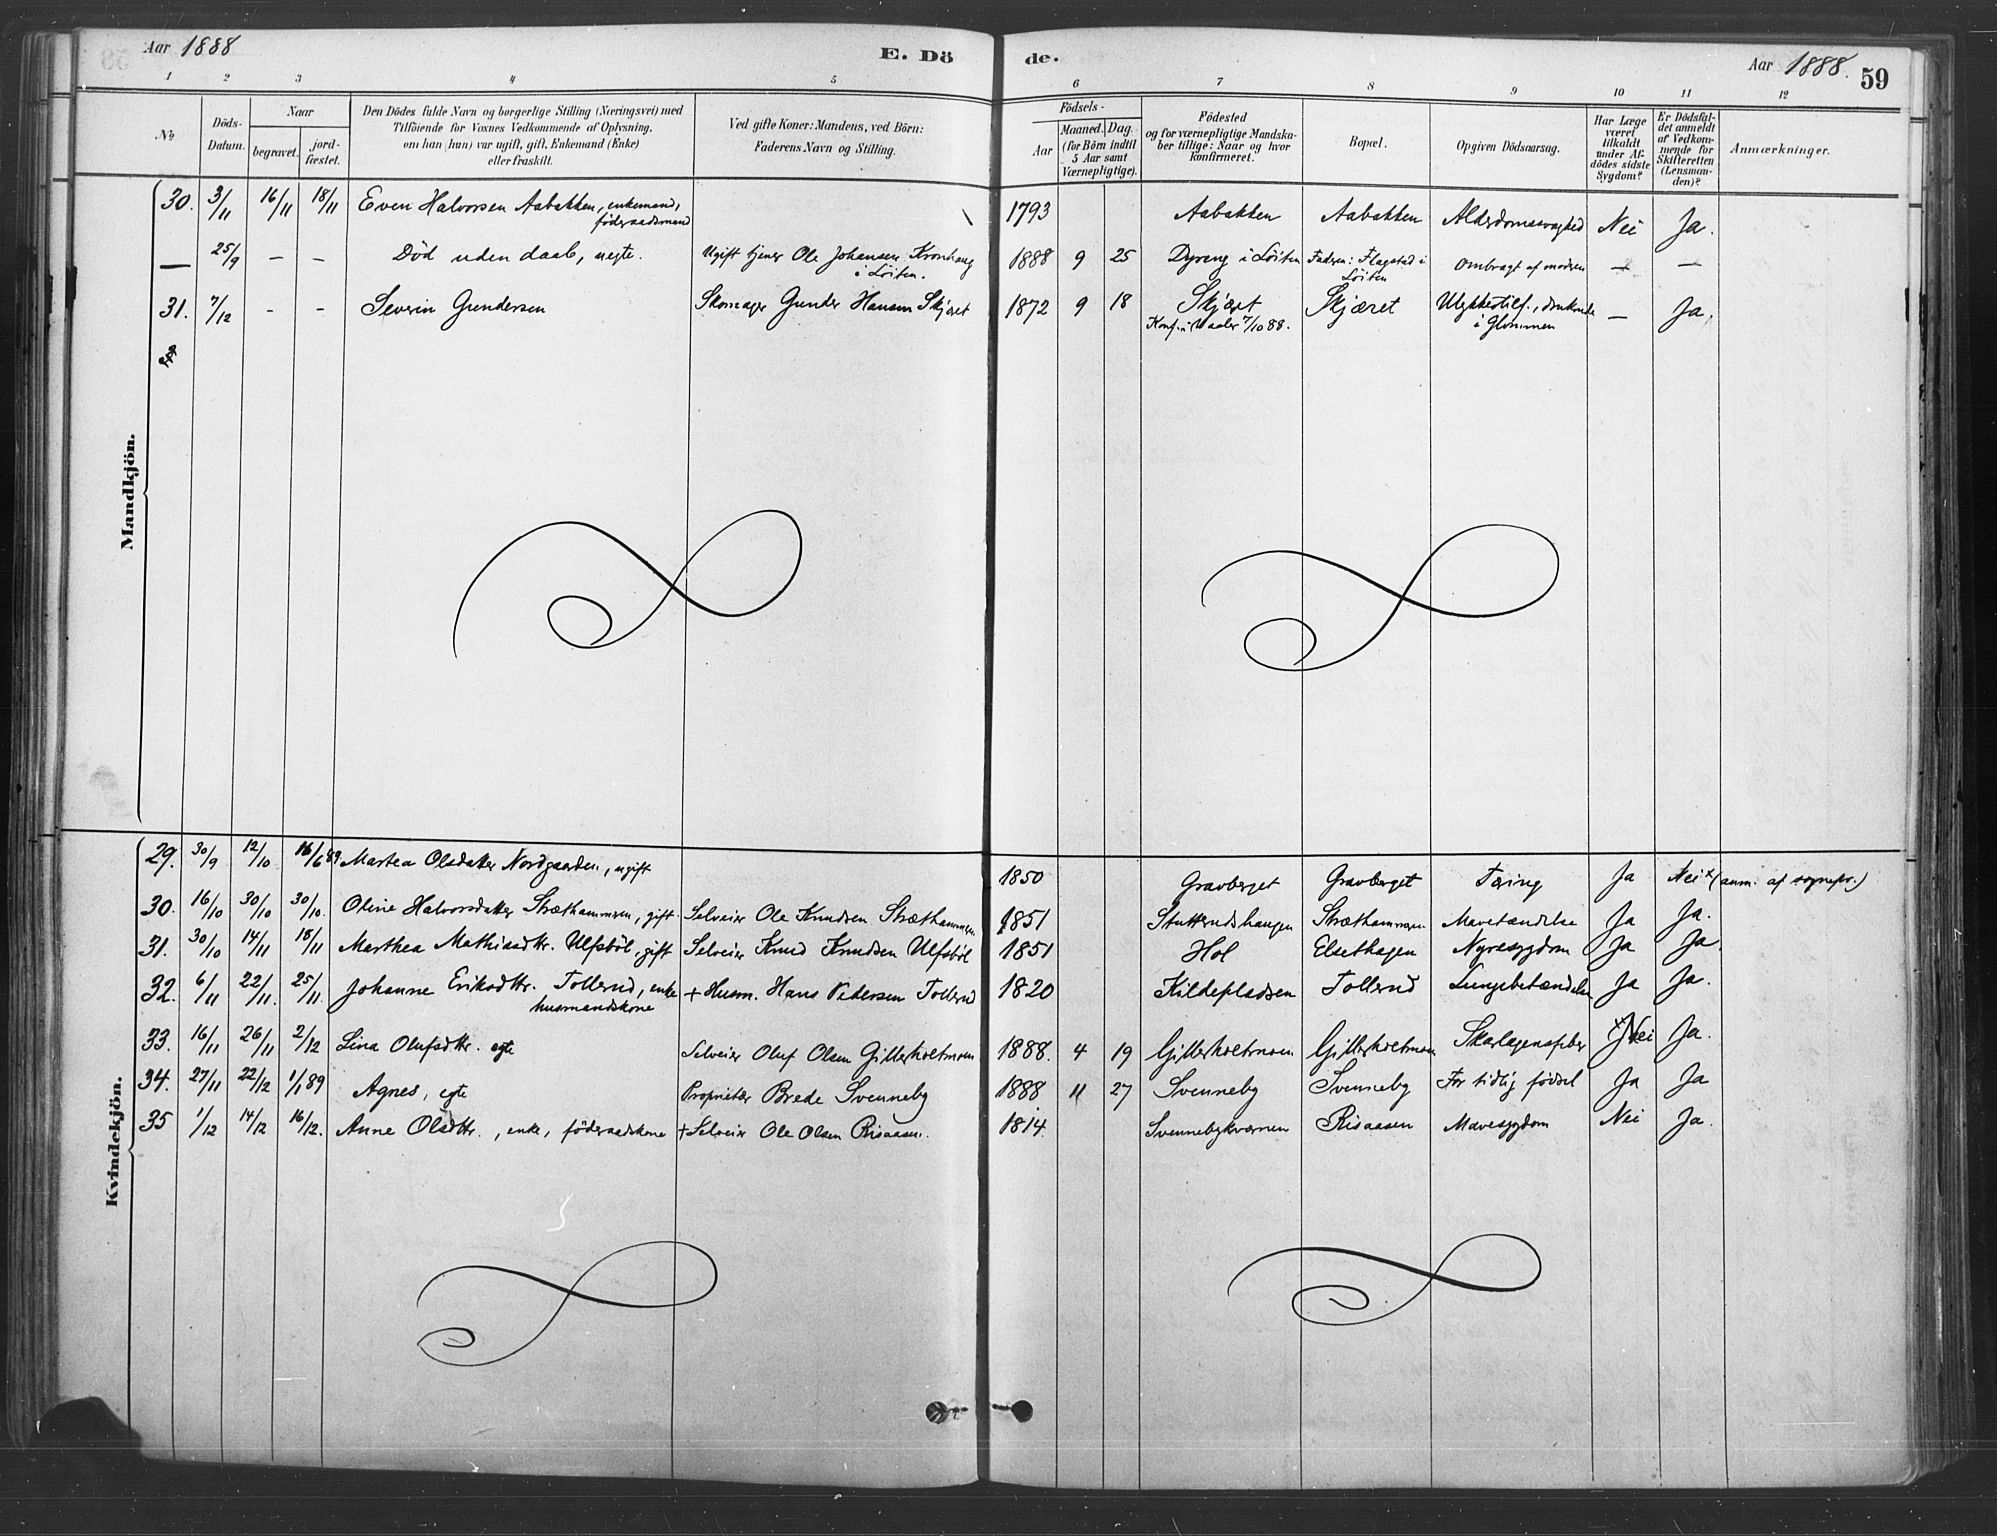 Aar 1888 E. Dö de. Aar 1888. 59
1 2 3 4 5 6 7 8 9 10 11 12
No
Döds-Datum.
Naar
begravet.
jord-fæstet.
Den Dödes fulde Navn og borgerlige Stilling (Næringsvei) med
Tilföiende for Voxnes Vedkommende af Oplysning,
om han (hun) var ugift, gift, Enkemand (Enke)
eller fraskilt.
Ved gifte Koner: Mandens, ved Börn:
Faderens Navn og Stilling.
Födsels-
Aar
Maaned. Dag.
(for Börn indtil
5 Aar samt
Værnepligtige).
Födested
og for værnepligtige Mandska-
ber tillige: Naar og hvor
konfirmeret.
Bopæl.
Opgiven Dödsaarsag.
Har Læge
været
tilkaldt
under Af-
dödes sidste
Sygdom?
Er Dödsfal-
det anmeldt
af Vedkom-
mende for
Skifteretten
(Lensman-
den)?
Anmærkninger.
Mandkjön.
30. 3/11 16/11 18/11 Even Halvorsen Aabakken, enkemand, föderaadsmand 1793 Aabakken Aabakken Alderdomssvaghed Nei Ja.
— 25/9 – – Död uden daab, uegte. Ugift tjener Ole Johansen Kronhaug i Löiten. 1888 9 25 Dyreng i Löiten Faderen: Flagstad i Löiten Ombragt af moderen — —
31. 7/12 - - Severin Gundersen Skomager Gunder Hansen Skjæret 1872 9 18 Skjæret Konf. i Vaaler 7/10 88. Skjæret Ulykkestilf., druknede i Glommen — Ja.
Kvindekjön.
29. 30/9 12/10 16/6 89 Martea Olsdatter Nordgaarden, ugift 1850 Gravberget Gravberget Tæring Ja Nei x (anm. af sognepr.)
30. 16/10 30/10 30/10. Oline Halvorsdatter Stræthammeren, gift. Selveier Ole Knudsen Stræthammeren 1851 Stutterudshaugen Stræthammeren Mavetændelse Ja Ja.
31. 30/10 14/11 18/11 Marthea Mathisadtr. Ulfsböl, gift Selveier Knud Knudsen Ulfsböl 1851 Hol Elsethagen Nyresygdom Ja Ja.
32. 6/11 22/11. 25/11. Johanne Eriksdtr. Tollerud, enke husmandskone + Husm. Hans Pedersen Tollerud 1820 Kildepladsen Tollerud Lungebetændelse Ja Ja.
33. 16/11 26/11 2/12 Lina Olufsdtr. egte Selveier Oluf Olsen Gitterholtmoen 1888. 4 19 Gitterholtmoen Gitterholtmoen Skarlagensfeber Nei Ja.
34. 27/11 22/12 1/1 89 Agnes, egte Proprietær Brede Svenneby 1888 11 27 Svenneby Svenneby For tidlig födsel Ja Ja
35 1/12 14/12 16/12. Anne Olsdtr., enke, föderaadskone + Selveier Ole Olsen Risaasen. 1814. Svennebykværnen Risaasen Mavesygdom Nei Ja.